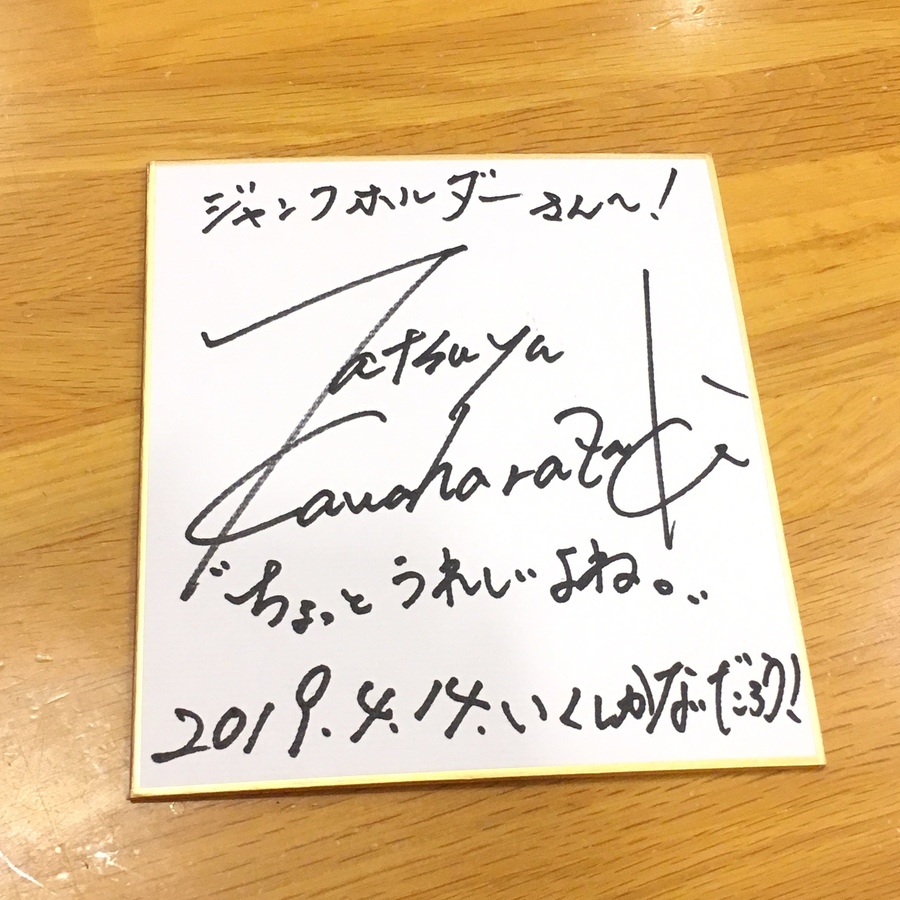 ジャンクホルダーさん〜!
Tatsuya
Kawaharazaki
"ちょっとうれしいよね。"
2019.4.14.いくしかないだろう!